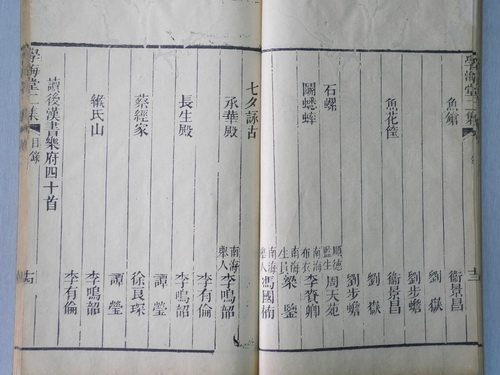 學海堂二集
十二
魚 衞景昌
劉嶽
劉步蟾
魚花筐 衞景昌
劉嶽
劉步蟾
石螺 順德監生 周天苑
鬭蟋蟀 南海布衣 李賚卿
南海生員 梁鑒
南海舉人 馮國倚
七夕詠古
承華殿 南海舉人 李鳴韶
李有倫
長生殿 李鳴韶
譚瑩
蔡經家 徐良琛
譚瑩
緱氏山 李鳴韶
李有倫
讀後漢書樂府四十首
學海堂二集 目錄